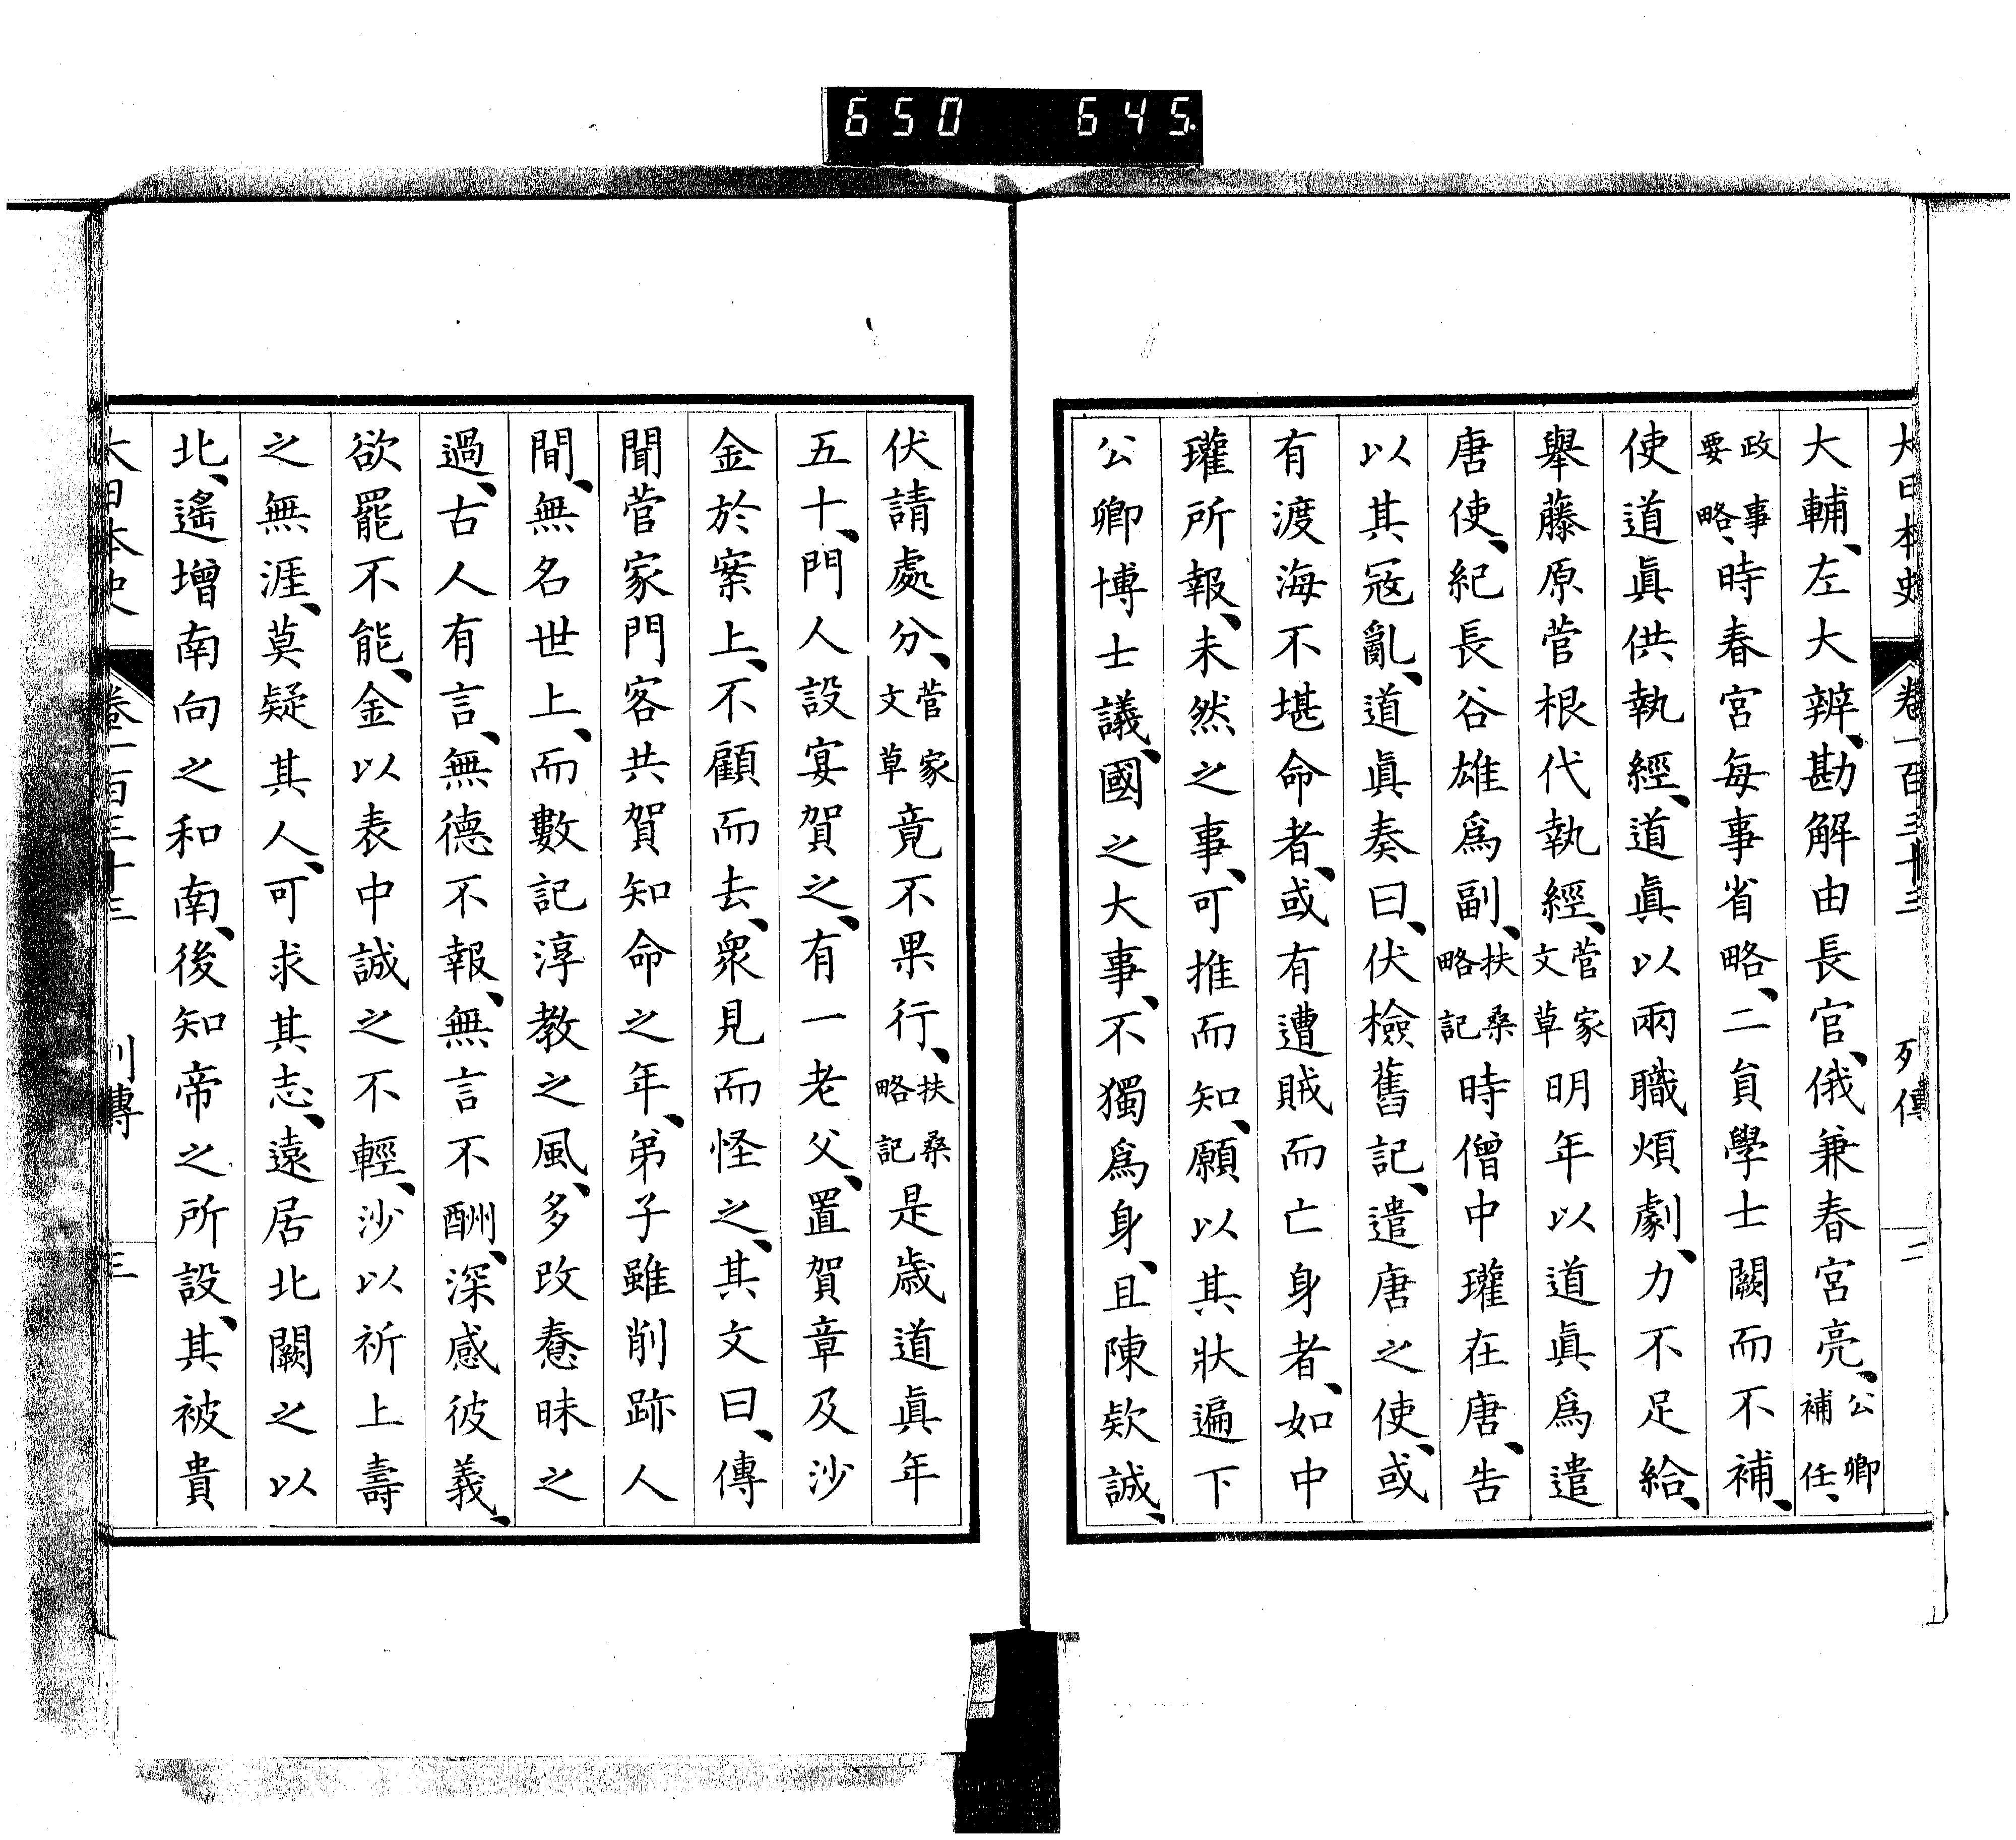 650 645.
大日本史 卷一百三十三 列傳 二
大輔、左大辨、勘解由長官、俄兼春宮亮、公卿補任、
政事要略、時春宮每事省略、二員學士闕而不補、
使道眞供執經、道眞以兩職煩劇、力不足給、
舉藤原菅根代執經、菅家文草明年以道眞爲遣
唐使、紀長谷雄爲副、扶桑略記時僧中瓘在唐、告
以其冦亂、道眞奏曰、伏檢舊記、遣唐之使、或
有渡海不堪命者、或有遭賊而亡身者、如中
瓘所報、未然之事、可推而知、願以其狀遍下
公卿博士議、國之大事、不獨爲身、且陳欵誠、
伏請處分、菅家文草竟不果行、扶桑略記是歲道眞年
五十、門人設宴賀之、有一老父、置賀章及沙
金於案上、不顧而去、衆見而怪之、其文曰、傳
聞菅家門客共賀知命之年、弟子雖削跡人
間、無名世上、而數記淳教之風、多改惷昧之
過、古人有言、無德不報、無言不酬、深感彼義、
欲罷不能、金以表中誠之不輕、沙以祈上壽
之無涯、莫疑其人、可求其志、遠居北闕之以
北、遙增南向之和南、後知帝之所設、其被貴
大日本史 卷一百三十三 列傳 三